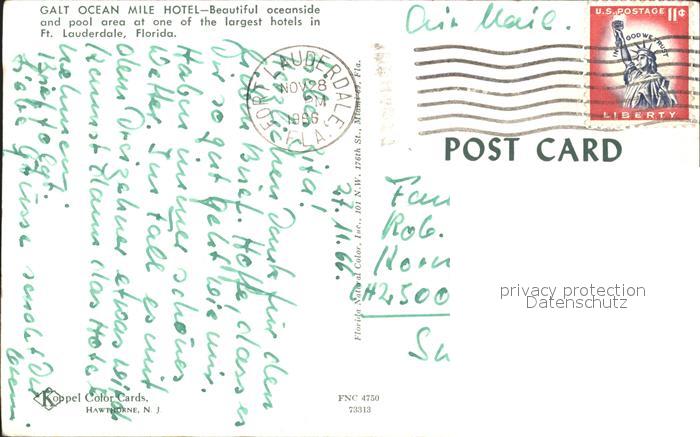 GALT OCEAN MILE HOTEL—Beautiful oceanside
and pool area at one of the largest hotels in
Ft. Lauderdale, Florida.
Air Mail.
FORT LAUDERDALE, FLA.
NOV 28
PM
1966
U.S. POSTAGE 11¢
IN GOD WE TRUST
LIBERTY
POST CARD
27. 11. 66.
Dank für den
Brief. Hoffe dass es
Dir so gut geht wie mir.
Haben immer schönes
Wetter. Im Fall es mit
dem etwas wird
kannst Dann das Hotel
nehmen.
Brief folgt.
Liebe Grüsse sendet Dir
Fam
Rob.
Horn
CH 2500
Florida Natural Color, Inc., 101 N.W. 176th St., Miami 69, Fla.
privacy protection
Datenschutz
Koppel Color Cards,
HAWTHORNE, N. J.
FNC 4750
73313